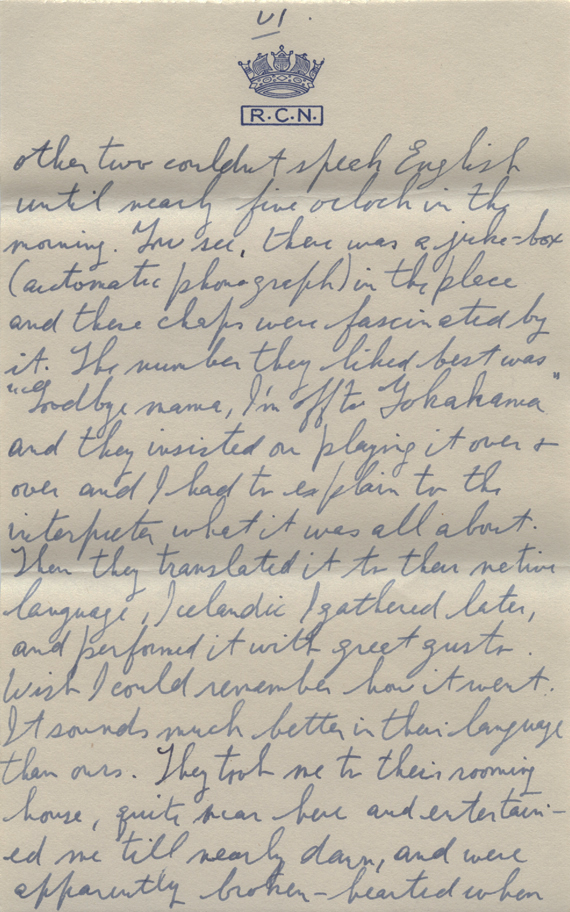 VI.
R.C.N.
other two couldn't speak English
until nearly five oclock in the
morning. You see, there was a juke-box
(automatic phonograph) in the place
and these chaps were fascinated by
it. The number they liked best was
"Goodbye mama, I'm off to Yokahama"
and they insisted on playing it over &
over and I had to explain to the
interpreter what it was all about.
Then they translated it to their native
language, Icelandic I gathered later,
and performed it with great gusto.
Wish I could remember how it went.
It sounds much better in their language
than ours. They took me to their rooming
house, quite near here and entertain-
ed me till nearly dawn, and were
apparently broken-hearted when